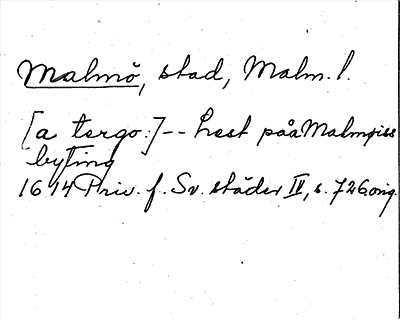 Malmö, stad, Malm. l.
[a tergo:] -- Lest påa Malmøiss
byting
1614 Priv. f. Sv. städer IV, s. 726 orig.